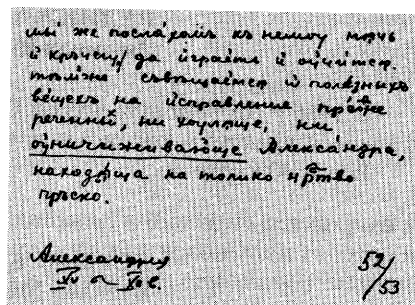 мы же послахомъ къ немоу мячь
и кръчегу, да играетъ и оучитсѧ.
тѡмже съвѣщается ѡ полезныхъ
вещехъ на исправление преже
реченный, ни хоулѧще, ни
оуничиживающе Александра,
находѧща на толико црⷭтво
прьско.
Александрия
XV в.
52/53